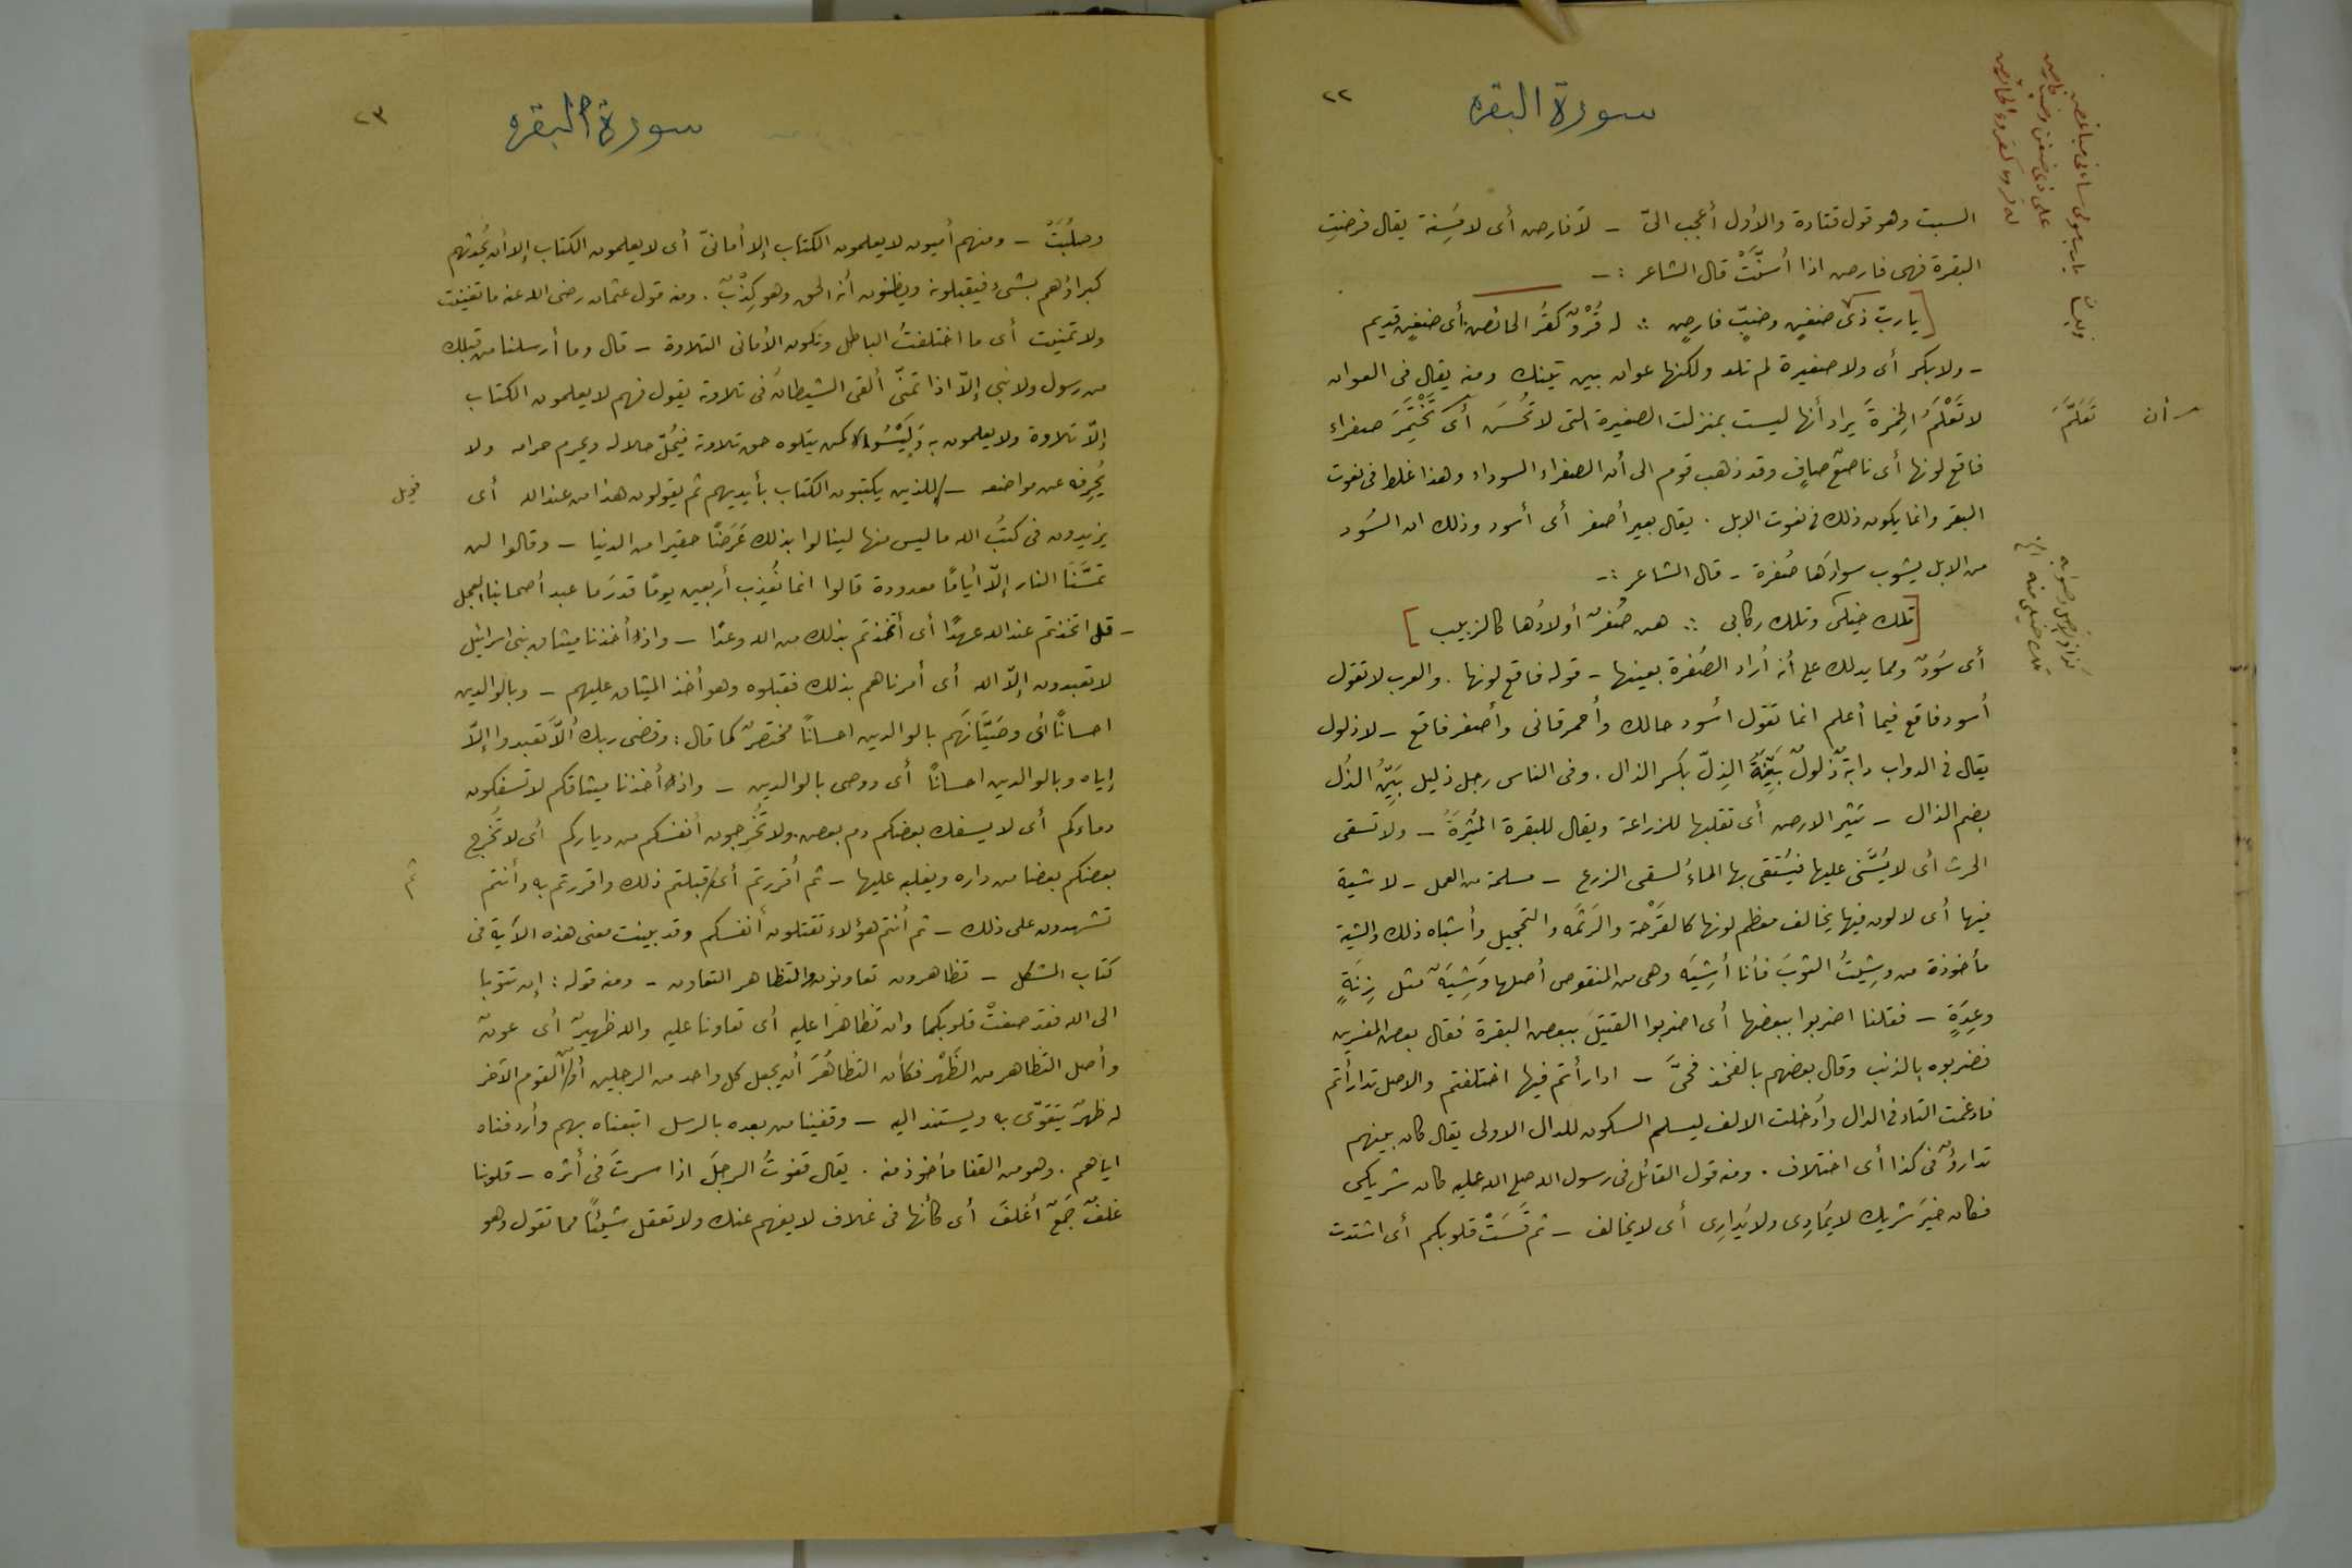 ٢٢
سورة البقرة
السبت وهو قول قتادة والأول أعجب اليّ - لا فارض أى لا مُسِنة يقال فرضتِ
البقرة فهى فارض اذا أسنَّتْ قال الشاعر :-
[ياربّ ذى ضغنٍ وضبٍّ فارضٍ :: له قُرْوٌ كقُر الحائض. أى ضغنٍ قديم
- ولا بكر أى ولا صغيرة لم تلد ولكنها عوان بين تينك ومنه يقال فى العوان
لا تَعْلَمُ الخِمْرةَ يراد أنها ليست بمنزلت الصغيرة التى لا تُحسَن أى تَخْتَمِرَ صفراء
فاقع لونها أى ناصعٌ صافٍ وقد ذهب قوم الى أن الصفراء السوداء وهذا غلط فى نعوت
البقر وانما يكون ذلك فى نعوت الابل . يقال بعير أصفر أى أسود وذلك ان السُود
من الابل يشوب سوادَها صُفرة - قال الشاعر :-
[تلك خيلى وتلك ركابى :: هن صُفرٌ أولادُها كالزبيب]
أى سُودٌ ومما يدلك على أنه أراد الصُفرة بعينها - قوله فاقع لونها . والعرب لا تقول
أسود فاقع فيما أعلم انما تقول أسود حالك وأحمر قانى وأصفر فاقع - لا ذلول
يقال فى الدواب دابةٌ ذَلولٌ بَيِّنةَ الذِلّ بكسر الذال . وفى الناس رجل ذليل بَيِّنُ الذُل
بضم الذال - تثير الارض أى تقلبها للزراعة ويقال للبقرة المُثيرَةُ - ولا تسقى
الحرث أى لا يُسْنَى عليها فيُستقى بها الماءُ لسقى الزرع - مسلمة من العمل - لا شية
فيها أى لا لون فيها يخالف معظم لونها كالقَرْحة والرَثْمَه والتحجيل وأشباه ذلك والشية
مأخوذة من وشيتُ الثوبَ فأنا أشِيَه وهى من المنقوص أصلها وَشِيَةٌ مثل زِنَةٍ
وعِدَةٍ - فقلنا اضربوا ببعضها أى اضربوا القتيلَ ببعض البقرة فقال بعض المفسرين
فضربوه بالذنب وقال بعضهم بالفخذ فحَىَّ - ادارأتم فيها اختلفتم والاصل تدارأتم
فادغمت التاء فى الدال وأدخلت الالف ليسلم السكون للدال الاولى يقال كان بينهم
تدارؤٌ فى كذا أى اختلاف . ومنه قول القائل فى رسول الله صلع الله عليه كان شريكى
فكان خيرَ شريك لا يُمارِى ولا يُدارِى أى لا يخالف - ثم قَسَتْ قلوبكم أى اشتدت
أن
تَعَلَّمَ
٢٣
سورة البقرة
وصلُبَتْ - ومنهم أميون لا يعلمون الكتاب إلا أمانىّ أى لا يعلمون الكتاب إلا أن يُحدثهم
كبراؤهم بشىء فيقبلونه ويظنون أنه الحق وهو كِذْبٌ . ومنه قول عثمان رضى الله عنه ما تغنيت
ولا تمنيت أى ما اختلقتُ الباطل وتكون الأمانى التلاوة - قال وما أرسلنا من قبلك
من رسول ولا نبى إلّا اذا تمنّى ألقى الشيطانُ فى تلاوته يقول فهم لا يعلمون الكتاب
إلّا تلاوة ولا يعلمون به وَلَيْسُوا كمن يتلوه حق تلاوته فيُحُلّ حلاله ويحرم حرامه ولا
يُحرفه عن مواضعه - للذين يكتبون الكتاب بأيديهم ثم يقولون هذا من عند الله أى
فويل
يزيدون فى كتبُ الله ما ليس منها لينالوا بذلك غَرَضًا حقيرا من الدنيا - وقالوا لن
تمسَّنَا النار إلّا أيّامًا معدودة قالوا انما نُعذب أربعين يومًا قدرَما عبد أصحابنا العجل
- قل اتخذتم عند الله عهدًا أى أتخذتم بذلك من الله وعدًا - واذ أخذنا ميثاق بنى اسرائيل
لا تعبدون إلّا الله أى أمرناهم بذلك فقبلوه وهو أخذ الميثاق عليهم - وبالوالدين
احسانًا أى وصَيَّناهُم بالوالدين احسانًا مختصرٌ كما قال : وقضى ربك ألّا تعبدوا إلّا
إياه وبالوالدين احسانًا أى ووصى بالوالدين - واذ أخذنا ميثاقكم لا تسفكون
دماءكم أى لا يسفك بعضكم دم بعض. ولا تُخرِجون أنفسكم من دياركم أى لا تُخرج
بعضكم بعضا من داره ويغلبه عليها - ثم أقررتم أى قبلتم ذلك واقررتم به وأنتم
ثم
تشهدون على ذلك - ثم أنتم هؤلاء تقتلون أنفسكم وقد بينت معنى هذه الآية فى
كتاب المشكل - تظاهرون تعاونون والتظاهر التعاون - ومنه قوله : إن تتوبا
الى الله فقد صغتْ قلوبكما وان تظاهرَا عليه أى تعاونا عليه والله ظهيرٌ أى عونٌ
وأصل التظاهر من الظَهْر فكأن التظاهُرَ أن يجعل كل واحد من الرجلين أو القوم الآخر
له ظهرًا يتقوّى به ويستند اليه - وقفينا من بعده بالرسل اتبعناه بهم وأردفناه
اياهم . وهو من القفا مأخوذ منه . يقال قفوتُ الرجلَ اذا سرتَ فى أثره - قلوبنا
غلفٌ جَمعٌ أغلفَ أى كأنها فى غلاف لا يفهم عنك ولا تعقل شيئًا مما تقول وهو